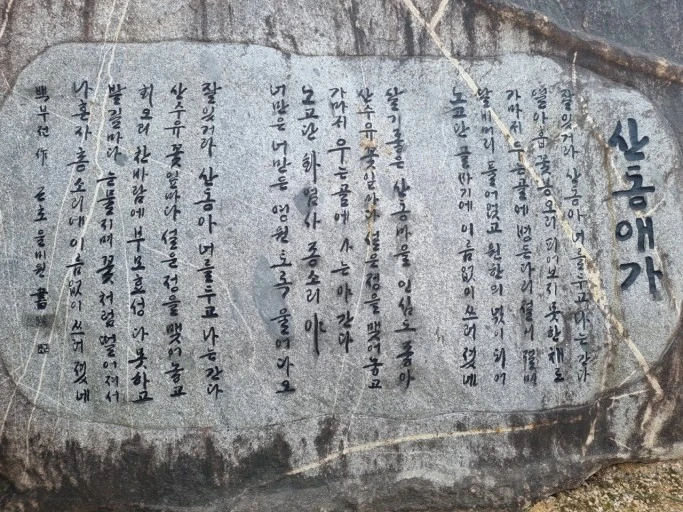 산동애가
잘있거라 산동아 너를두고 나는 간다
열아홉 꽃봉오리 피어보지 못한채로
가마귀 우는골에 병든다리 절며절며
달비머리 풀어얹고 원한의 넋이되어
노고단 골짜기에 이름없이 쓰러졌네
살기좋은 산동마을 인심도 좋아
산수유 꽃잎마다 설운정을 맺어놓고
가마귀 우는골에 나는야 간다
노고단 화엄사 종소리야
너만은 너만은 영원토록 울어다오
잘있거라 산동아 너를두고 나는간다
산수유 꽃잎마다 설운정을 맺어놓고
회오리 찬바람에 부모효성 다못하고
발길마다 눈물지며 꽃처럼 떨어져서
나혼자 총소리에 이름없이 쓰러졌네